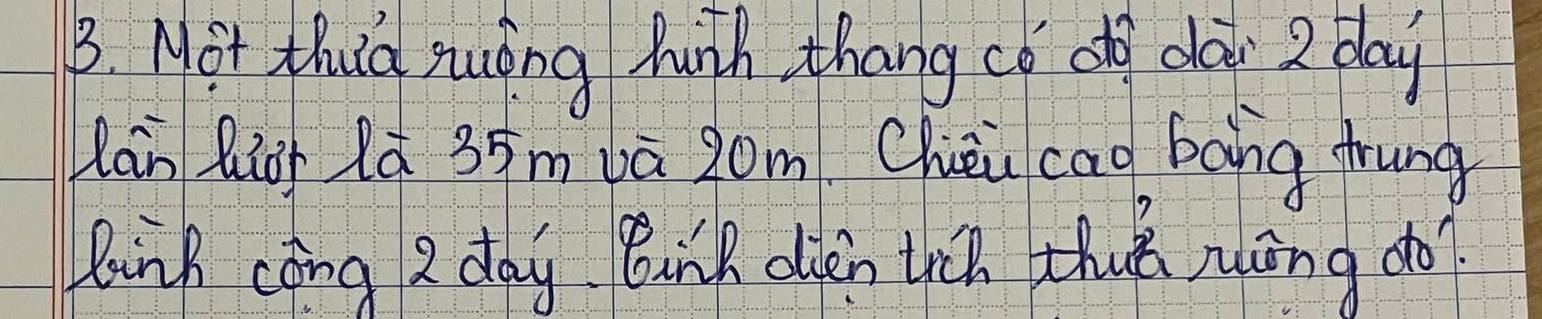 3. Một thửa ruộng hình thang có độ dài 2 đáy
lần lượt là 35m và 20m. Chiều cao bằng trung
bình cộng 2 đáy. Tính diện tích thửa ruộng đó.